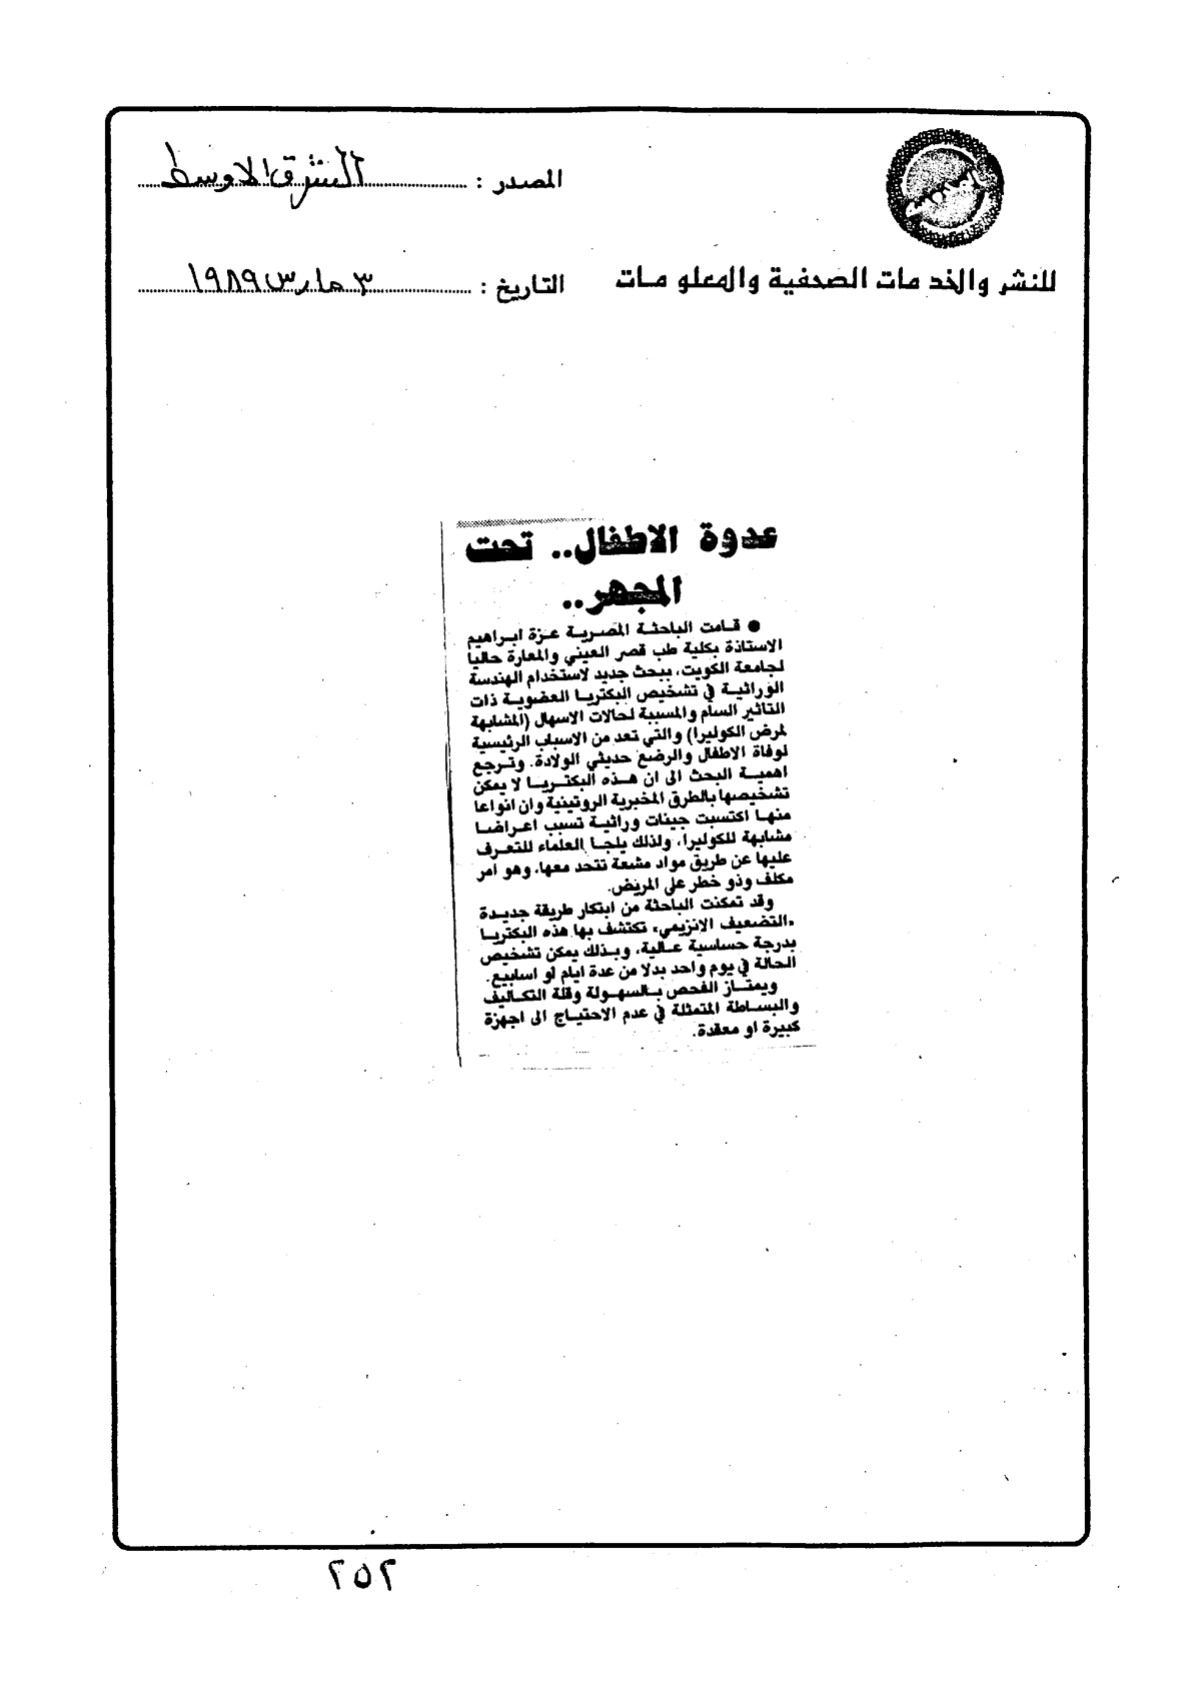 المصدر : الشرق الاوسط
للنشر والخدمات الصحفية والمعلومات
التاريخ : ٣ مارس ١٩٨٩
عدوة الاطفال.. تحت
المجهر..
● قامت الباحثة المصرية عزة ابراهيم
الاستاذة بكلية طب قصر العيني والمعارة حاليا
لجامعة الكويت، ببحث جديد لاستخدام الهندسة
الوراثية في تشخيص البكتريا العضوية ذات
التاثير السام والمسببة لحالات الاسهال (المشابهة
لمرض الكوليرا) والتي تعد من الاسباب الرئيسية
لوفاة الاطفال والرضع حديثي الولادة. وترجع
اهمية البحث الى ان هذه البكتريا لا يمكن
تشخيصها بالطرق المخبرية الروتينية وان انواعا
منها اكتسبت جينات وراثية تسبب اعراضا
مشابهة للكوليرا، ولذلك يلجا العلماء للتعرف
عليها عن طريق مواد مشعة تتحد معها، وهو امر
مكلف وذو خطر على المريض.
وقد تمكنت الباحثة من ابتكار طريقة جديدة
«التضعيف الانزيمي» تكتشف بها هذه البكتريا
بدرجة حساسية عالية، وبذلك يمكن تشخيص
الحالة في يوم واحد بدلا من عدة ايام او اسابيع.
ويمتاز الفحص بالسهولة وقلة التكاليف
والبساطة المتمثلة في عدم الاحتياج الى اجهزة
كبيرة او معقدة.
٢٥٢